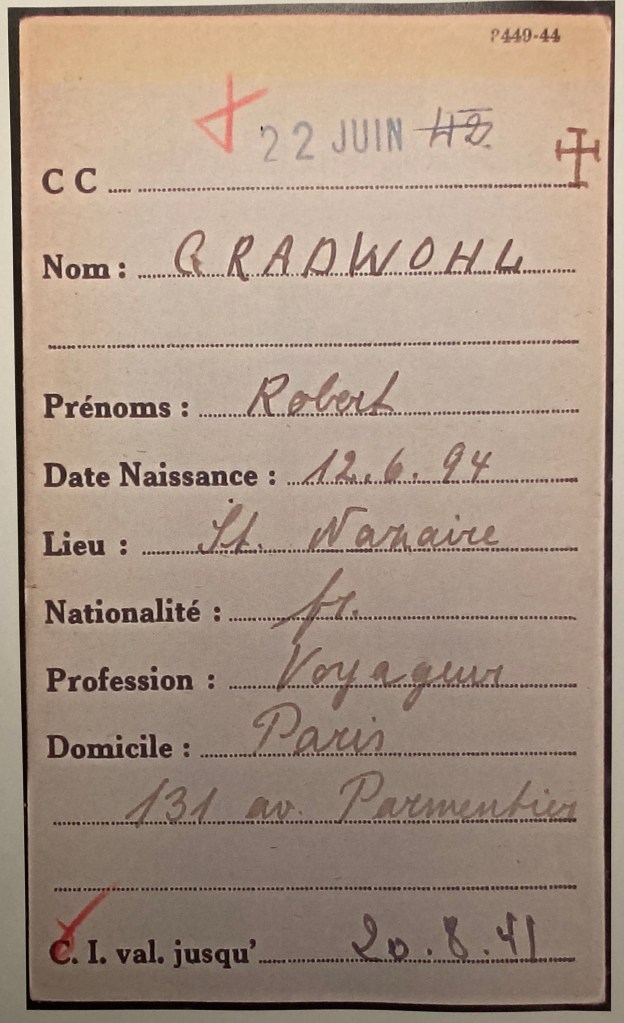 P449-44
22 JUIN 42
CC
Nom : GRADWOHL
Prénoms : Robert
Date Naissance : 12.6.94
Lieu : St. Nazaire
Nationalité : fr.
Profession : Voyageur
Domicile : Paris
131 av. Parmentier
C. I. val. jusqu' 20.8.41